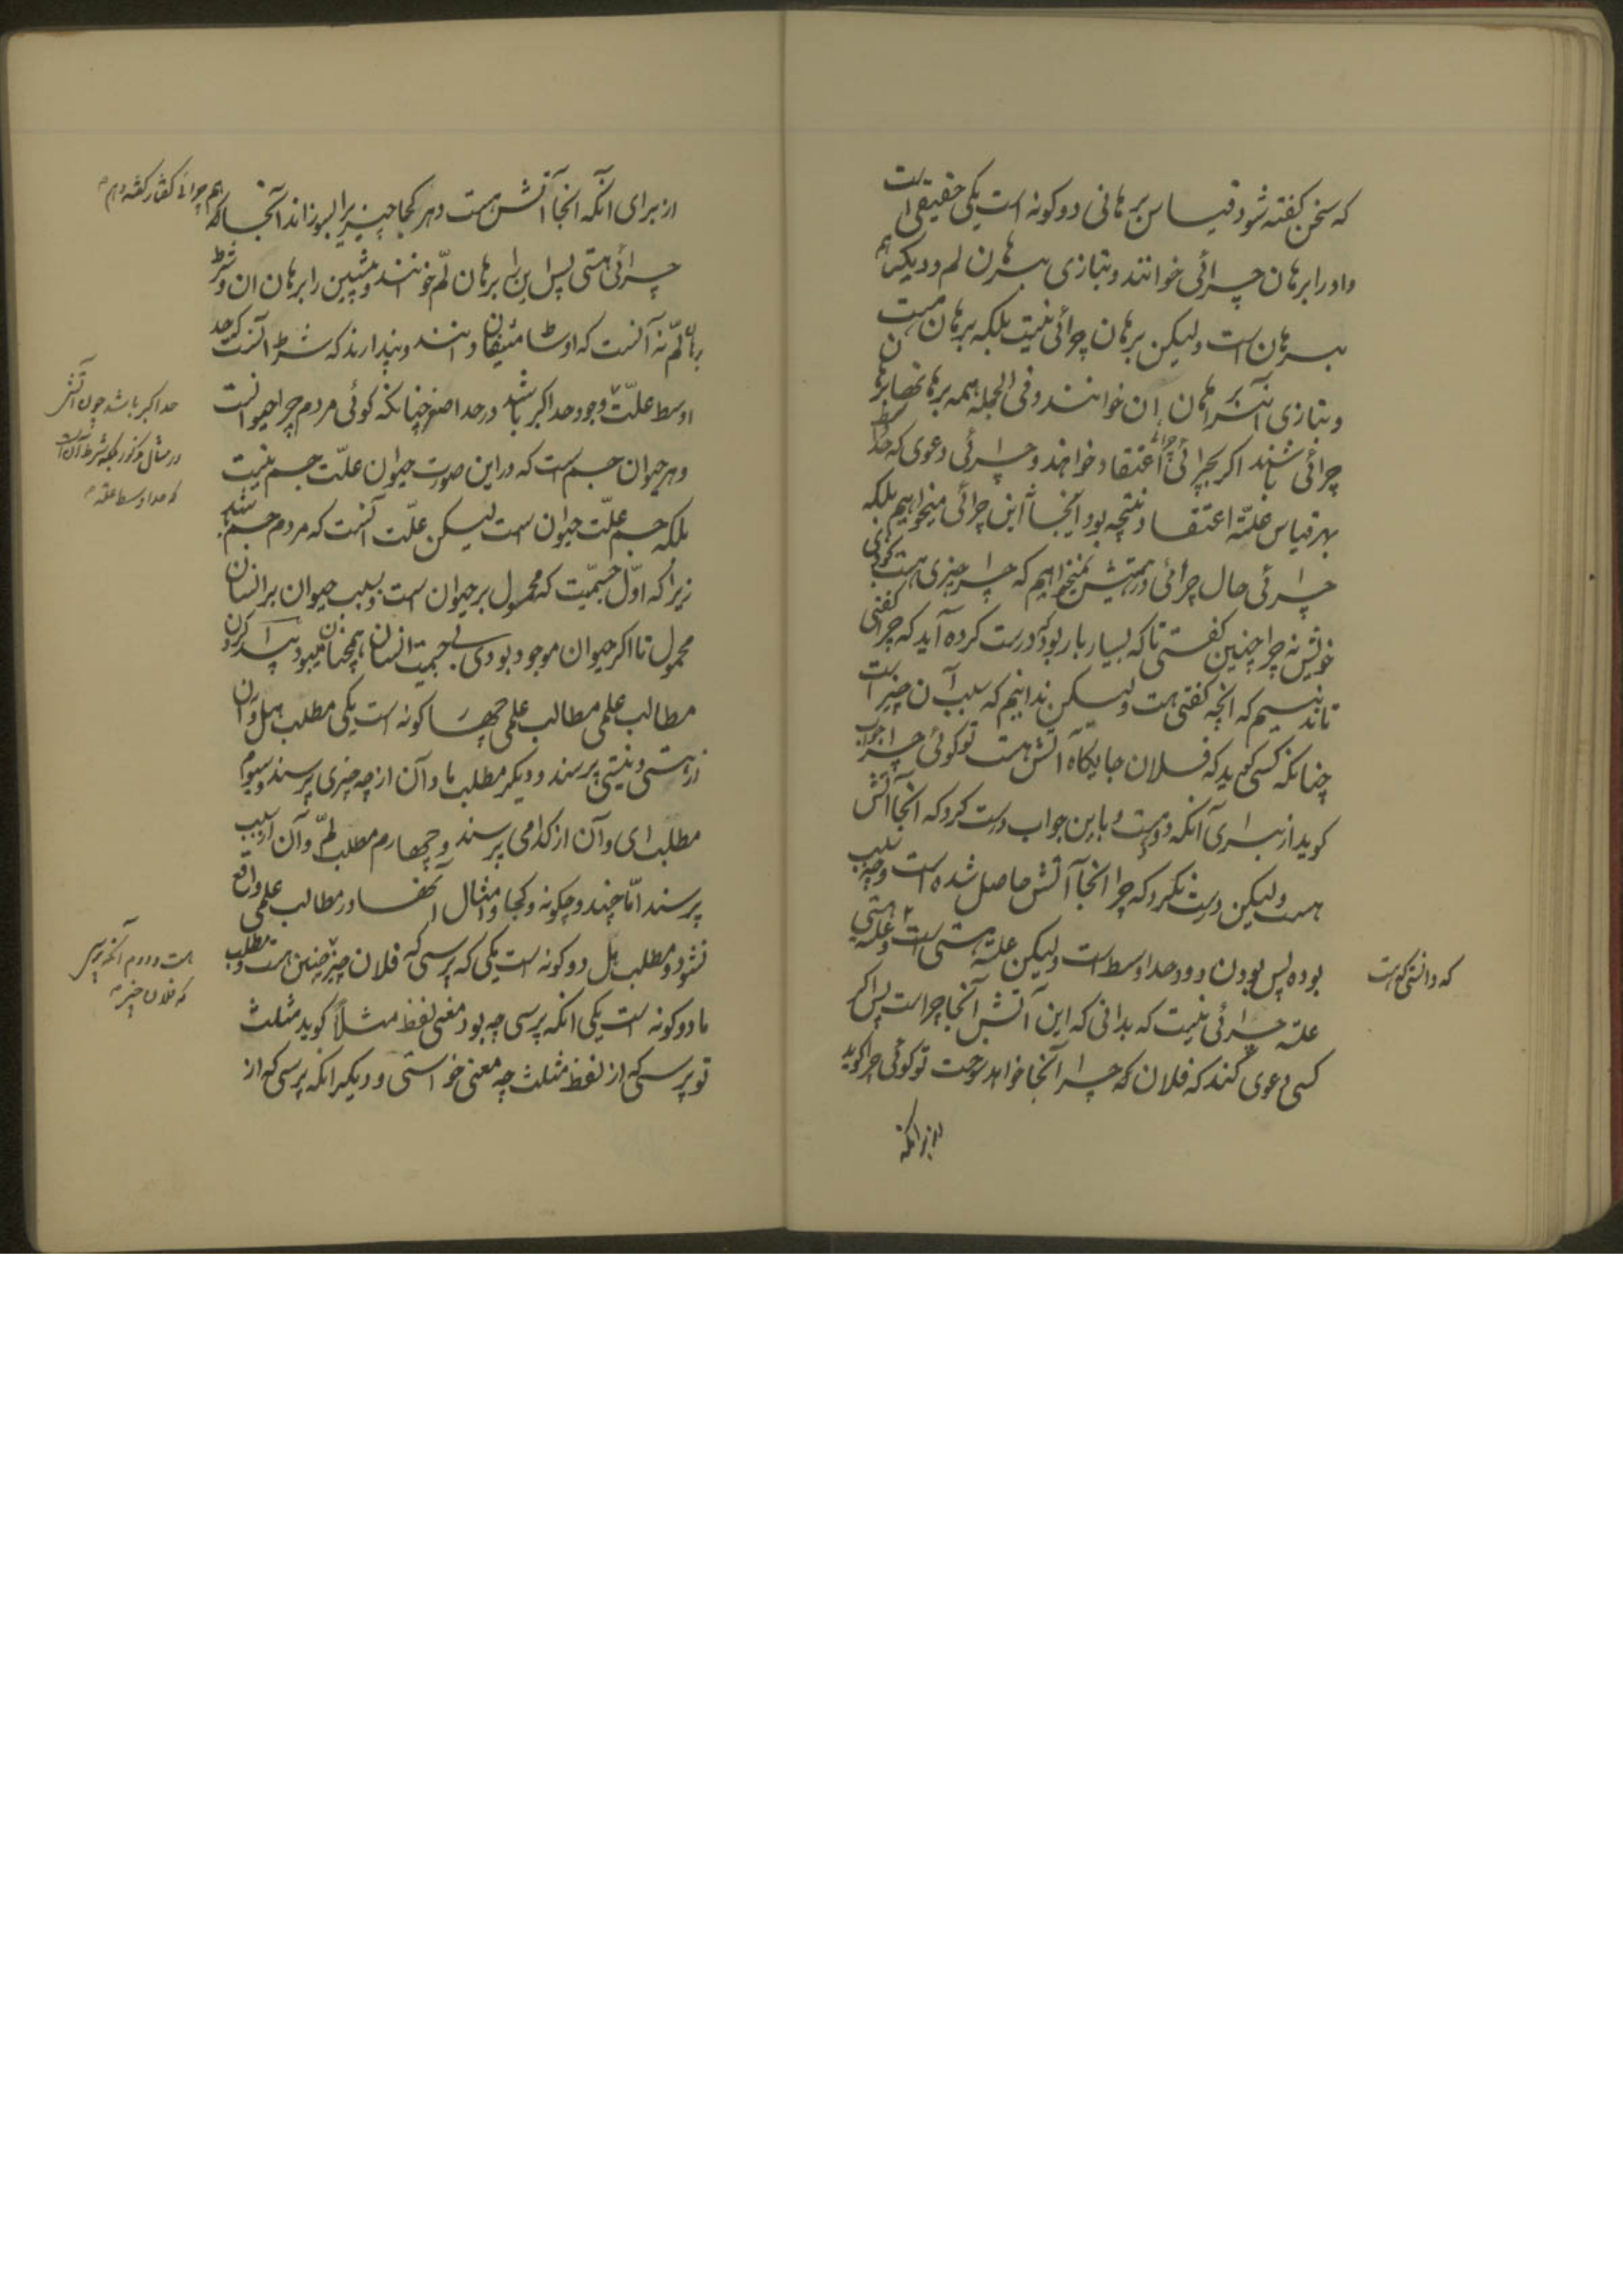 که سخن کفته شود قیاس برهانی دو کونه است یکی حقیقی است
و او را برهان چرائی خوانند و بتازی برهان لم و دیکر هم
برهان است ولیکن برهان چرائی نیست بلکه برهان هست
و بتازی آنرا برهان ان خوانند و فی الجمله همه برهانها برهان
چرائی باشند اکر بچرائی چرائی اعتقاد خواهند و چرائی دعوی که حد اوسط
بهر قیاس علة اعتقاد نتیجه بود اینجا این چرائی میخواهیم بلکه
چرائی حال چرائی در هستیش میخواهیم که چرا چیزی هست کوئی بی
خویش نه چرا چنین کفتی تا که بسیار بار بود که درست کرده آید که چرا کفتی
تا ندانیم که انچه کفتی هست ولیکن ندانیم که سبب آن چیز است
چنانکه کسی کوید که فلان جایکاه آتش هست تو کوئی چرا جواب
کوید از برای آنکه دود هست و باین جواب درست کرد که انجا آتش
هست ولیکن درست نکرد که چرا انجا آتش حاصل شده است و چه سبب
بوده پس بودن دود حد اوسط است ولیکن علة هستی است و علة هستی
که دانستی که هست
علة چرائی نیست که بدانی که این آتش آنجا چراست پس اکر
کسی دعوی کند که فلان که چرا آنجا خواهد سوخت تو کوئی چرا کوید
از برای آنکه
از برای انکه انجا آتش هست و هر کجا چیزیرا بسوزاند آنجا که
هم چرائی کفتار کفته و هم
چرائی هستی پس این را برهان لم خوانند و پیشین را برهان ان و شرط
برهان لم نه آنست که اوستا منقیان دانند و پندارند که شرط آنست که حد
اوسط علت وجود حد اکبر باشد در حد اصغر چنانکه کوئی مردم چرا حیوانست
حد اکبر باشد چون آتش
در مثال مذکور بلکه شرط آن است
که حد اوسط علة
و هر حیوان جسم است که در این صورت حیوان علت جسم نیست
بلکه جسم علت حیوان است لیکن علت آنست که مردم جسم باشد
زیرا که اول جسمیت که محمول بر حیوان است و بسبب حیوان بر انسان
محمول تا اکر حیوان موجود بودی بی جسمیت انسان همچنان میبود پیدا کردن
مطالب علمی مطالب علمی چهار کونه است یکی مطلب هل و آن
از هستی و نیستی پرسند و دیکر مطلب ما و آن از چه چیزی پرسند و سیوم
مطلب ای و آن از کدامی پرسند و چهارم مطلب لم و آن از سبب
پرسند اما چند و چکونه و کجا و امثال آنها در مطالب علمی واقع
نشود و مطلب هل دو کونه است یکی که پرسی که فلان چیز چنین هست و مطلب
هست و دوم آنکه پرسی
که فلان چیز
ما دو کونه است یکی انکه پرسی چه بود معنی لفظ مثلاً کوید مثلث
تو پرسی که از لفظ مثلث چه معنی خواستی و دیکر انکه پرسی که از